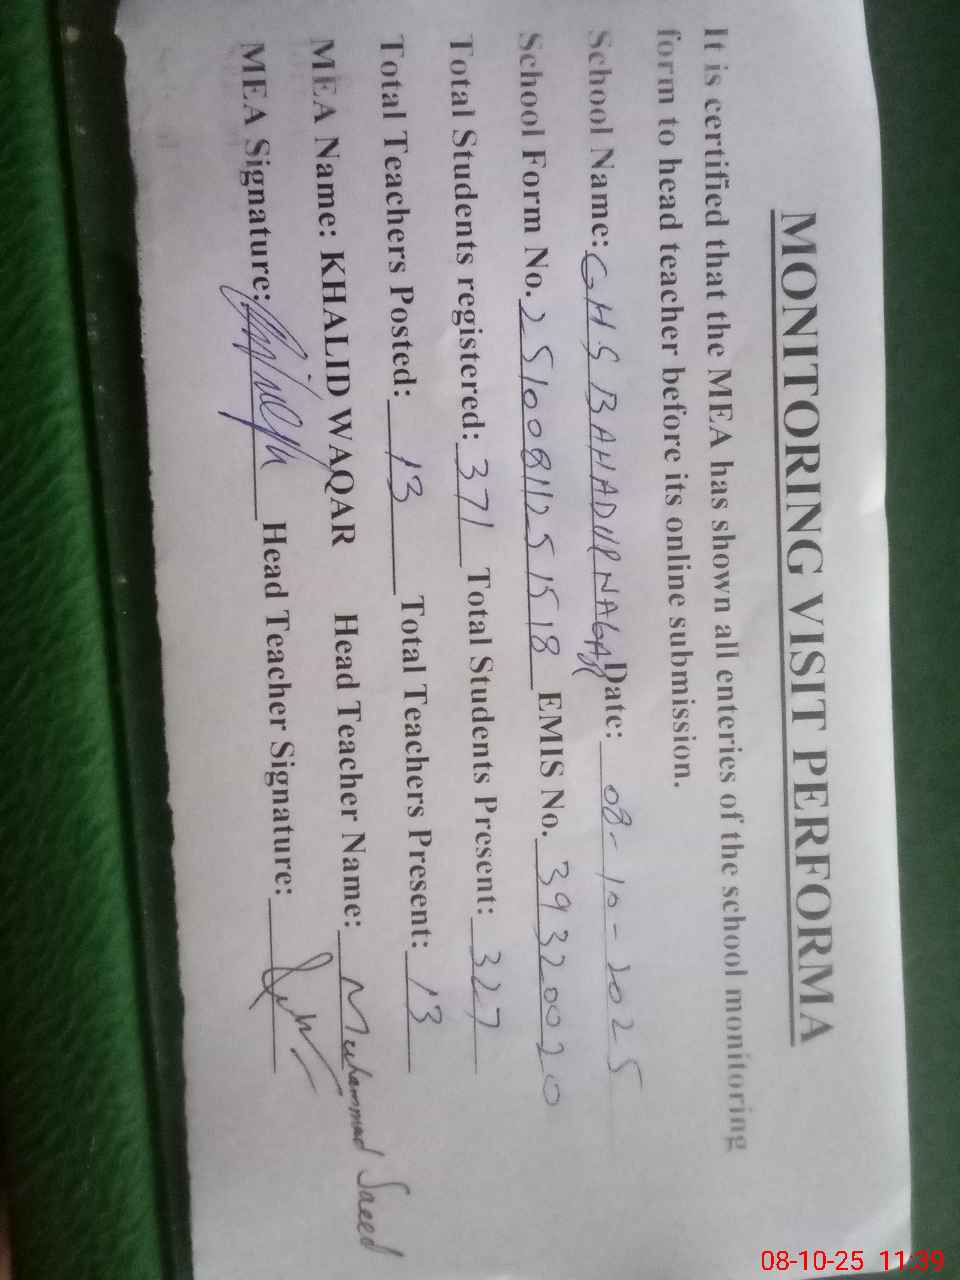 MONITORING VISIT PERFORMA
It is certified that the MEA has shown all enteries of the school monitoring
form to head teacher before its online submission.
School Name: GHS BAHADUR NAGAR Date: 08-10-2025
School Form No. 25100811251518 EMIS No. 39320020
Total Students registered: 371 Total Students Present: 327
Total Teachers Posted: 13 Total Teachers Present: 13
MEA Name: KHALID WAQAR Head Teacher Name: Muhammad Saeed
MEA Signature: Head Teacher Signature:
08-10-25 11:39